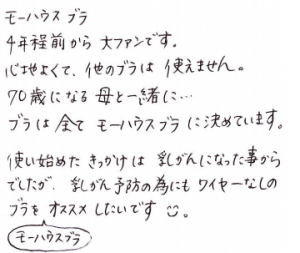 モーハウス ブラ
4年程前から 大ファンです。
心地よくて、他のブラは 使えません。
70歳になる 母と一緒に…
ブラは 全て モーハウスブラ に決めています。
使い始めた きっかけは 乳がんになった事から
でしたが、乳がん予防の為にも ワイヤーなしの
ブラを オススメ したいです ☺。
モーハウスブラ